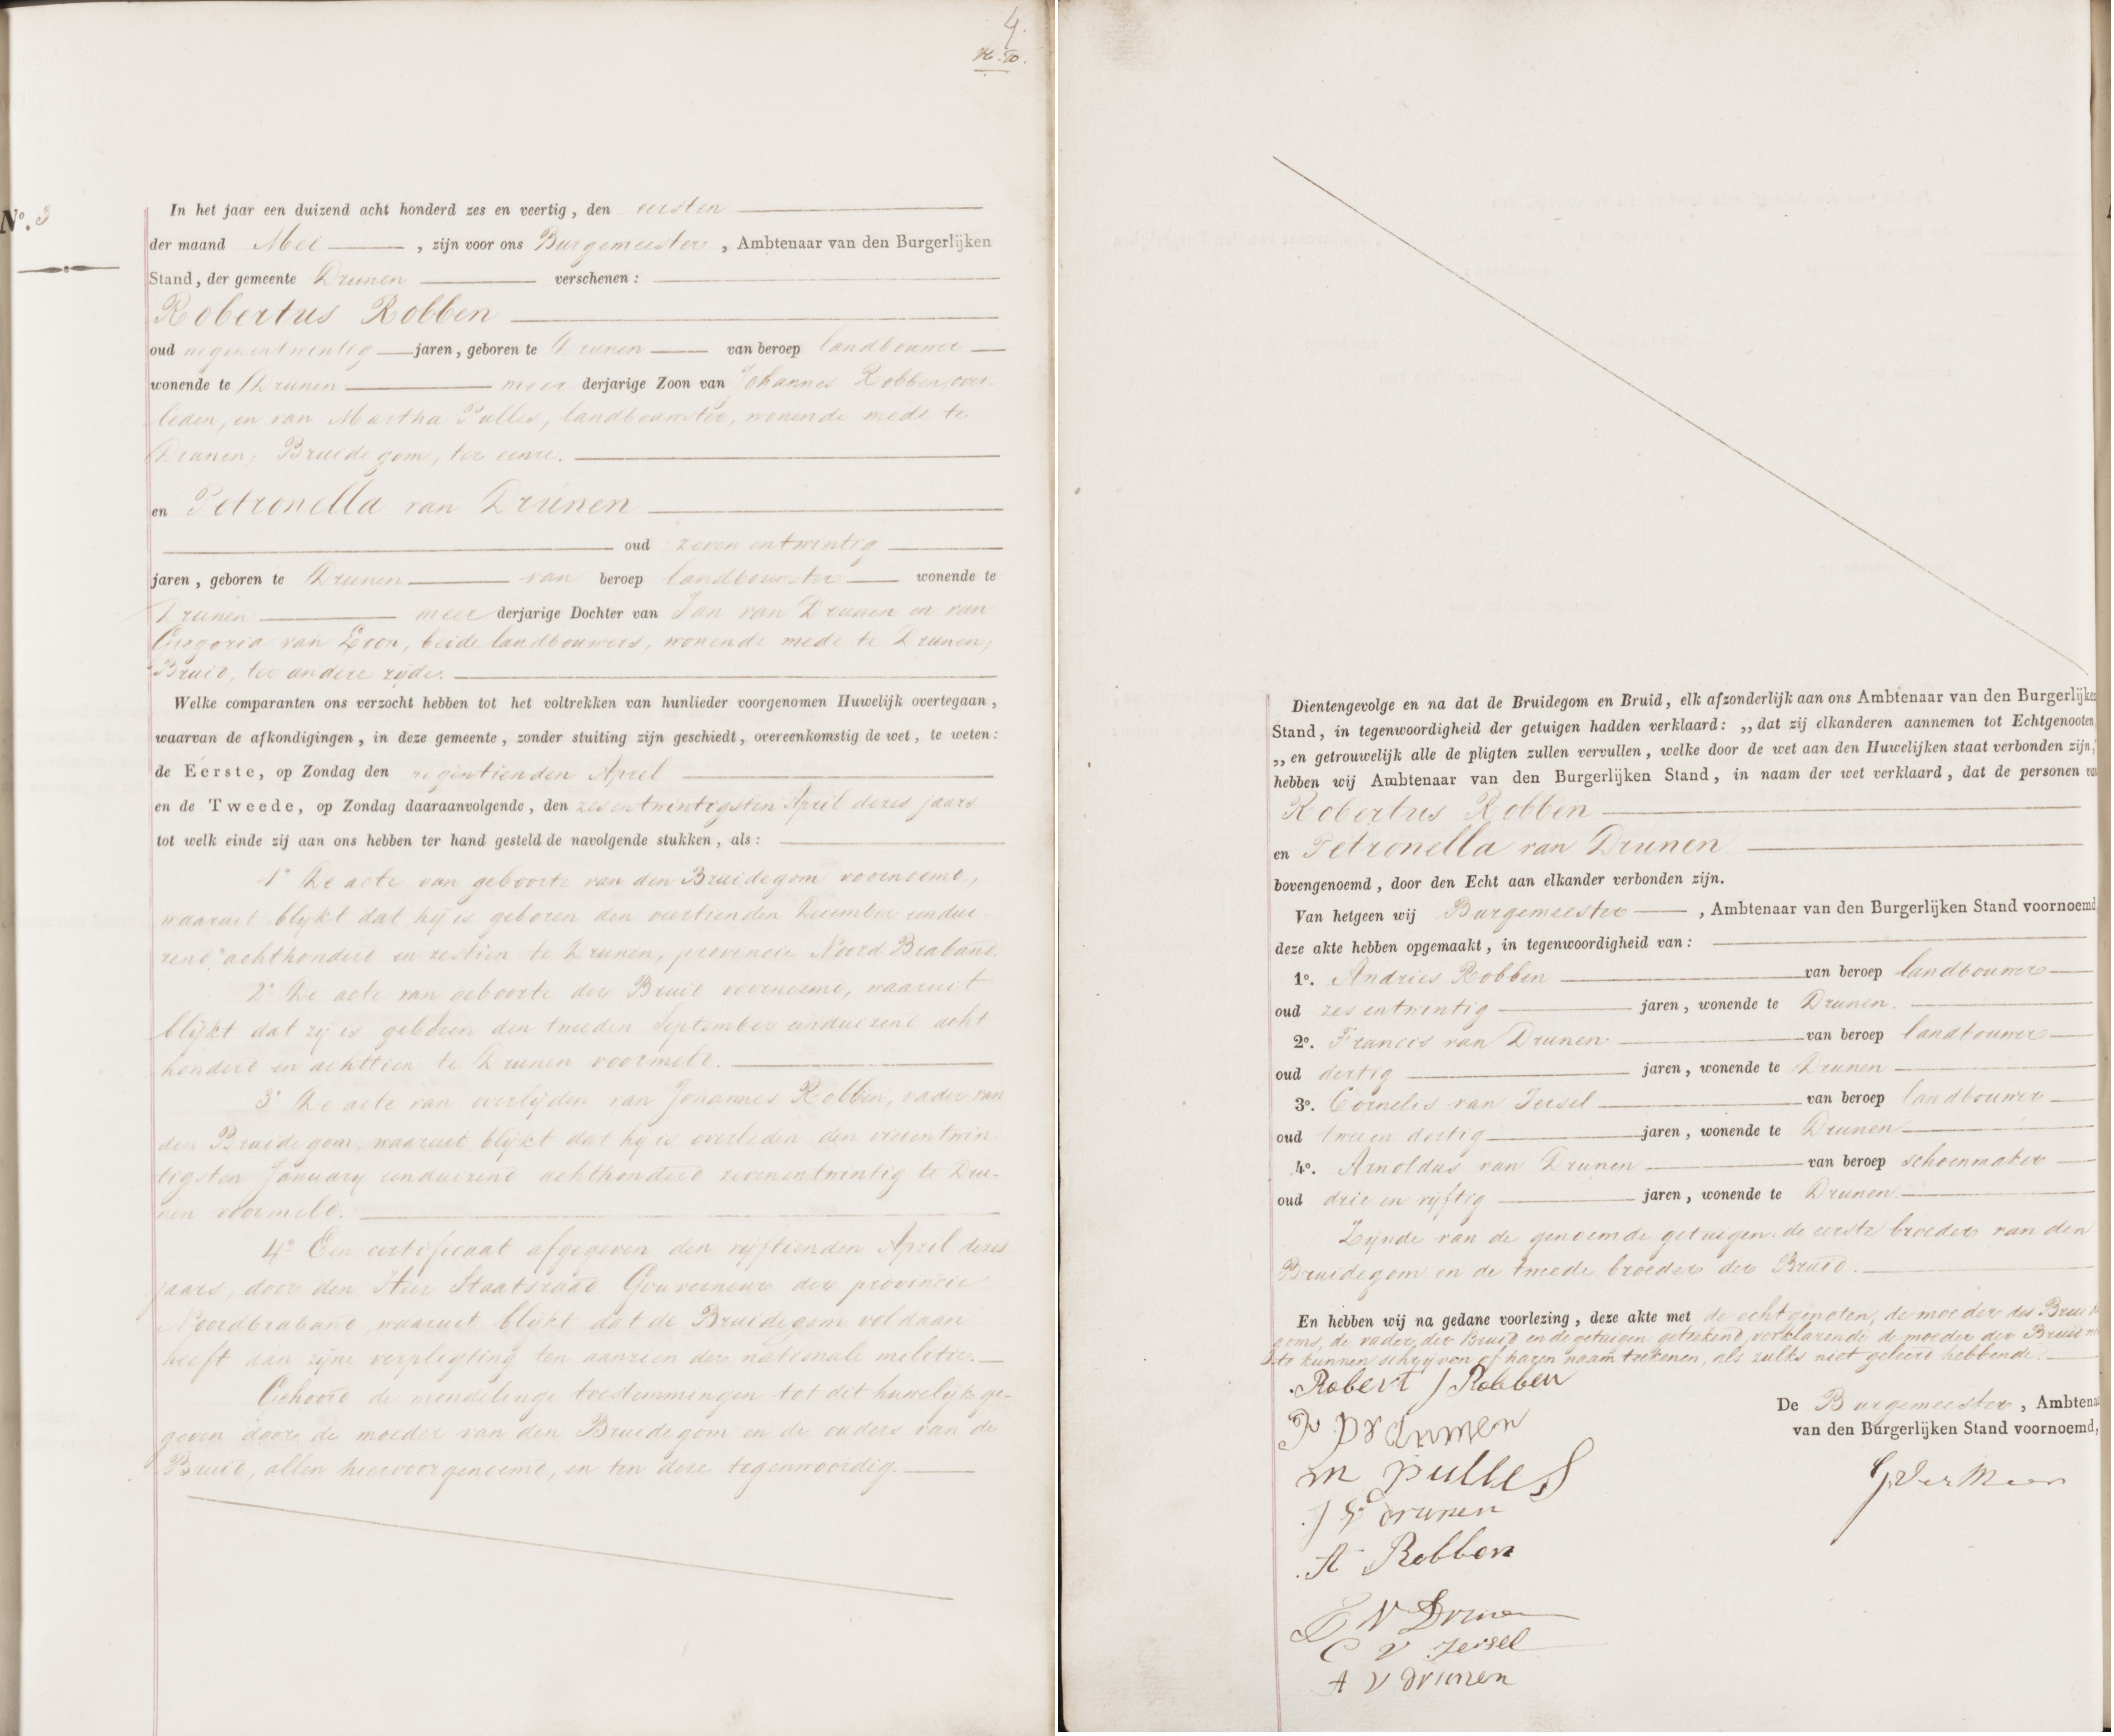 4.
No. 3
In het jaar een duizend acht honderd zes en veertig, den eersten
der maand Mei, zijn voor ons Burgemeester, Ambtenaar van den Burgerlijken
Stand, der gemeente Drunen verschenen:
Robertus Robben
oud negenentwintig jaren, geboren te Drunen van beroep landbouwer
wonende te Drunen meer derjarige Zoon van Johannes Robben, over-
leden, en van Martha Pulles, landbouwster, wonende mede te
Drunen, Bruidegom, ter eenre.
en Petronella van Drunen
oud zeven entwintig
jaren, geboren te Drunen van beroep landbouwster wonende te
Drunen meer derjarige Dochter van Jan van Drunen en van
Gregoria van Loon, beide landbouwers, wonende mede te Drunen,
Bruid, ter andere zijde.
Welke comparanten ons verzocht hebben tot het voltrekken van hunlieder voorgenomen Huwelijk overtegaan,
waarvan de afkondigingen, in deze gemeente, zonder stuiting zijn geschiedt, overeenkomstig de wet, te weten:
de Eerste, op Zondag den negentienden April
en de Tweede, op Zondag daaraanvolgende, den zesentwintigsten April dezes jaars
tot welk einde zij aan ons hebben ter hand gesteld de navolgende stukken, als:
1° De acte van geboorte van den Bruidegom voornoemd,
waaruit blijkt dat hij is geboren den veertienden December eendui-
zend achthonderd en zestien te Drunen, provincie Noord Braband.
2° De acte van geboorte der Bruid voornoemd, waaruit
blijkt dat zij is geboren den tweeden September eenduizend acht
honderd en achttien te Drunen voormeld.
3° De acte van overlijden van Johannes Robben, vader van
den Bruidegom, waaruit blijkt dat hij is overleden den vierentwin-
tigsten January eenduizend achthonderd zevenentwintig te Dru-
nen voormeld.
4° Een certificaat afgegeven den vijftienden April dezes
jaars, door den Heer Staatsraad Gouverneur der provincie
Noordbraband, waaruit blijkt dat de Bruidegom voldaan
heeft aan zijne verpligting ten aanzien der nationale militie.
Gehoord de mondelinge toestemmingen tot dit huwelijk ge-
geven door de moeder van den Bruidegom en de ouders van de
Bruid, allen hiervoorgenoemd, en ten deze tegenwoordig.
Dientengevolge en na dat de Bruidegom en Bruid, elk afzonderlijk aan ons Ambtenaar van den Burgerlijken
Stand, in tegenwoordigheid der getuigen hadden verklaard: „dat zij elkanderen aannemen tot Echtgenooten
„en getrouwelijk alle de pligten zullen vervullen, welke door de wet aan den Huwelijken staat verbonden zijn,"
hebben wij Ambtenaar van den Burgerlijken Stand, in naam der wet verklaard, dat de personen van
Robertus Robben
en Petronella van Drunen
bovengenoemd, door den Echt aan elkander verbonden zijn.
Van hetgeen wij Burgemeester, Ambtenaar van den Burgerlijken Stand voornoemd
deze akte hebben opgemaakt, in tegenwoordigheid van:
1°. Andries Robben van beroep landbouwer
oud zes entwintig jaren, wonende te Drunen.
2°. Francis van Drunen van beroep landbouwer
oud dertig jaren, wonende te Drunen
3°. Cornelis van Iersel van beroep landbouwer
oud twee en dertig jaren, wonende te Drunen
4°. Arnoldus van Drunen van beroep schoenmaker
oud drie en vijftig jaren, wonende te Drunen
Zijnde van de genoemde getuigen de eerste broeder van den
Bruidegom en de tweede broeder der Bruid.
En hebben wij na gedane voorlezing, deze akte met de echtgenoten, de moeder des Bruide
goms, de vader der Bruid en de getuigen getekend, verklarende de moeder der Bruid niet
te kunnen schrijven of haren naam teekenen, als zulks niet geleerd hebbende.
Robert J Robben
P v Drunen
m pulles
J v drunen
A Robben
De Burgemeester, Ambtenaar
van den Burgerlijken Stand voornoemd,
G Ver Meer
F V Drunen
C V Iersel
A V Drunen